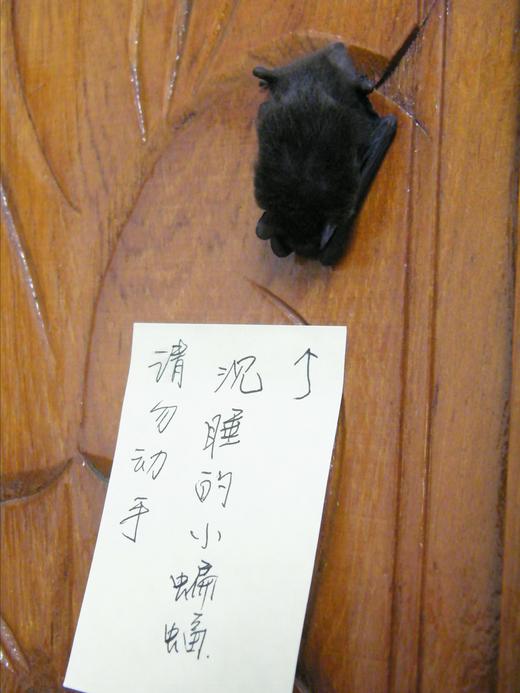 ↑
沉睡的小蝙蝠.
请勿动手